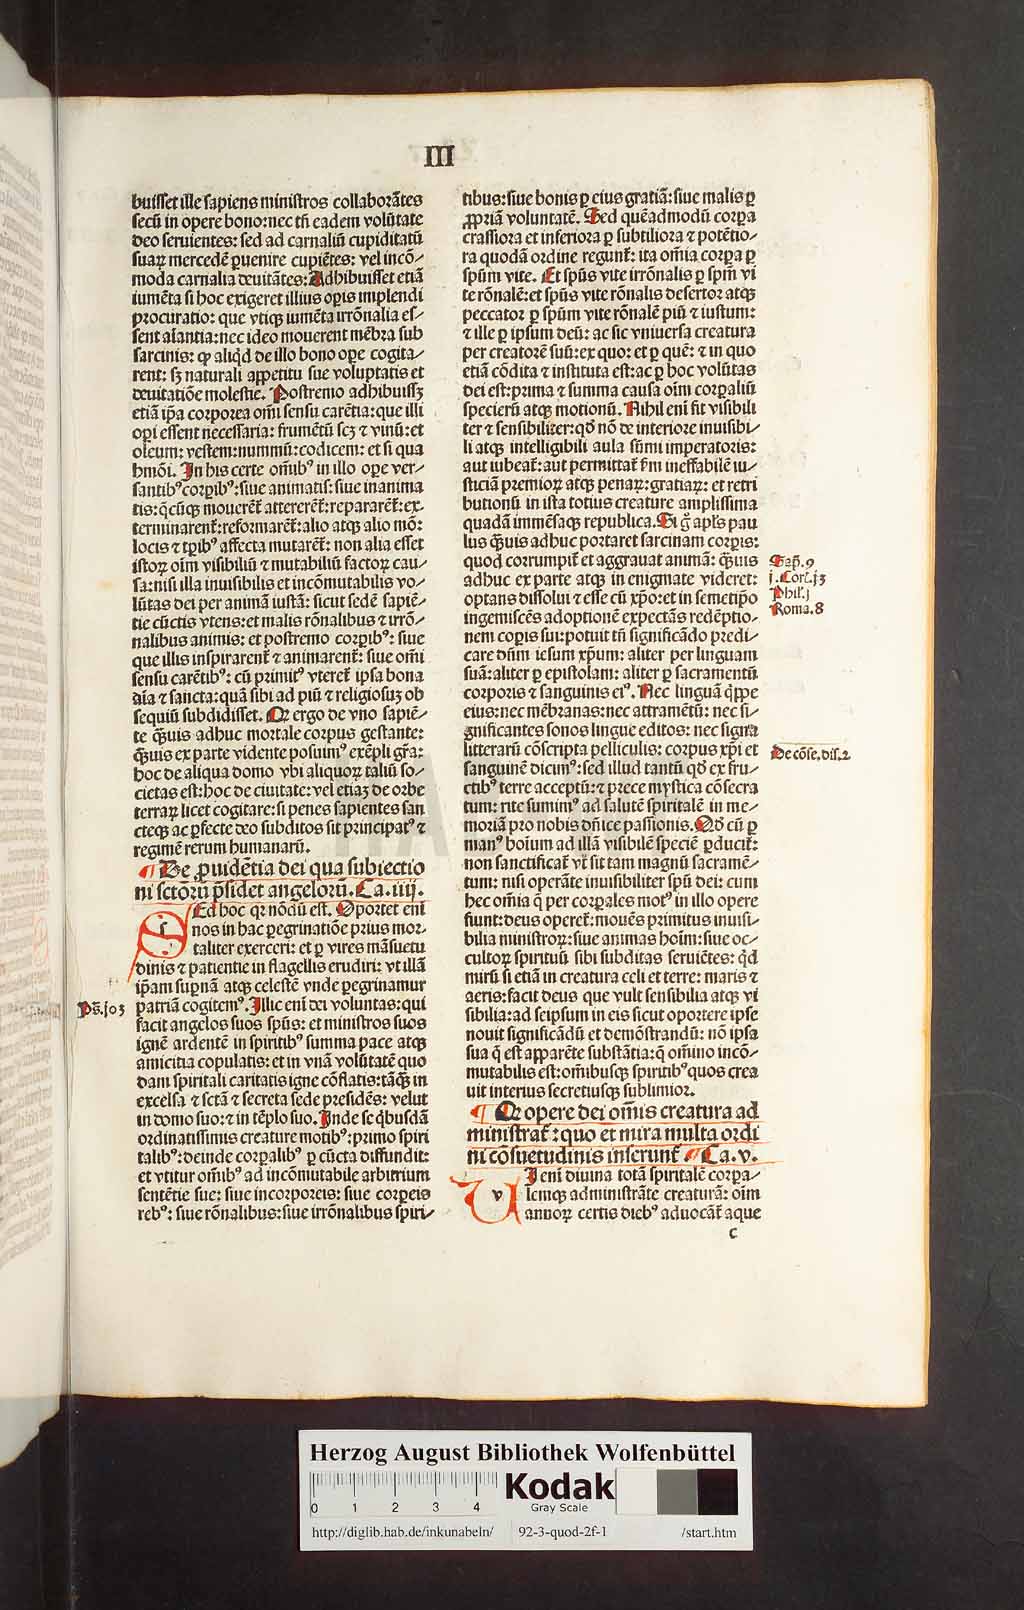 III
buisset ille sapiens ministros collaborātes
secū in opere bono: nec tñ eadem volūtate
deo seruientes: sed ad carnaliū cupiditatū
suaꝝ mercedē ꝑuenire cupiētes: vel incō-
moda carnalia deuitātes: Adhibuisset etiā
iumēta si hoc exigeret illius oꝑis implendi
procuratio: que vtiqꝫ iumēta irrōnalia es-
sent aīantia: nec ideo mouerent mēbra sub
sarcinis: ꝙ aliqd de illo bono oꝑe cogita-
rent: sꝫ naturali appetitu sue voluptatis et
deuitatiōe molestie. Postremo adhibuissꝫ
etiā ipa corporea omī sensu carētia: que illi
oꝑi essent necessaria: frumētū scꝫ ⁊ vinū: et
oleum: vestem: nummū: codicem: et si qua
hmōi. In his certe omībꝰ in illo oꝑe ver-
santibꝰ corꝑibꝰ: siue animatis: siue inanima
tis: qcūqꝫ mouerēt attererēt: repararēt: ex-
terminarent: reformarēt: alio atqꝫ alio mō:
locis ⁊ tꝑibꝰ affecta mutarēt: non alia esset
istoꝝ oīm visibiliū ⁊ mutabiliū factoꝝ cau-
sa: nisi illa inuisibilis et incōmutabilis vo-
lūtas dei per animā iustā: sicut sedē sapiē-
tie cūctis vtens: et malis rōnalibus ⁊ irrō-
nalibus animis: et postremo corꝑibꝰ: siue
que illis inspirarent ⁊ animarent: siue omī
sensu carētibꝰ: cū primitꝰ vteret ipsa bona
aīa ⁊ sancta: quā sibi ad piū ⁊ religiosuꝫ ob
sequiū subdidisset. Qꝛ ergo de vno sapiē-
te qͣuis adhuc mortale corpus gestante:
qͣuis ex parte vidente posuimꝰ exēpli gr̄a:
hoc de aliqua domo vbi aliquoꝝ taliū so-
cietas est: hoc de ciuitate: vel etiaꝫ de orbe
terraꝝ licet cogitare: si penes sapientes san
cteqꝫ ac ꝑfecte deo subditos sit principatꝰ ⁊
regimē rerum humanarū.
¶ De ꝓuidētia dei qua subiectio
ni sctōrū p̄sidet angelorū. Ca. iiij.
SEd hoc qꝛ nōdū est. Oportet enī
nos in hac ꝑegrinatiōe prius mor-
taliter exerceri: et ꝑ vires māsuetu
dinis ⁊ patientie in flagellis erudiri: vt illā
ip̄am suꝑnā atqꝫ celestē vnde ꝑegrinamur
Ps̄. jo3
patriā cogitemꝰ. Illic enī dei voluntas: qui
facit angelos suos spūs: et ministros suos
ignē ardentē in spiritibꝰ summa pace atqꝫ
amicitia copulatis: et in vnā volūtatē quo
dam spiritali caritatis igne cōflatis: tāqͣꝫ in
excelsa ⁊ sctā ⁊ secreta sede presidēs: velut
in domo suo: ⁊ in tēplo suo. Inde se qͥbusdā
ordinatissimis creature motibꝰ: primo spiri
talibꝰ: deinde corꝑalibꝰ ꝑ cūcta diffundit:
et vtitur omībꝰ ad incōmutabile arbitrium
sentētie sue: siue incorporeis: siue corꝑeis
rebꝰ: siue rōnalibus: siue irrōnalibus spiri-
tibus: siue bonis ꝑ eius gratiā: siue malis ꝑ
ꝓpriā voluntatē. Sed quēadmodū corꝑa
crassiora et inferiora ꝑ subtiliora ⁊ potētio-
ra quodā ordine regunt: ita omīa corꝑa ꝑ
spm̄ vite. Et spūs vite irrōnalis ꝑ spm̄ vi
te rōnalē: et spūs vite rōnalis desertor atqꝫ
peccator ꝑ spūm vite rōnalē piū ⁊ iustum:
⁊ ille ꝑ ipsum deū: ac sic vniuersa creatura
per creatorē suū: ex quo: et ꝑ quē: ⁊ in quo
etiā cōdita ⁊ instituta est: ac ꝑ hoc volūtas
dei est: prima ⁊ summa causa oīm corꝑaliū
specierū atqꝫ motionū. Nihil enī fit visibili
ter ⁊ sensibiliter: qd nō de interiore inuisibi-
li atqꝫ intelligibili aula sūmi imperatoris:
aut iubeat: aut permittat fm ineffabilē iu-
sticiā premioꝝ atqꝫ penaꝝ: gratiaꝝ: et retri
butionū in ista totius creature amplissima
quadā immēsaqꝫ republica. Si g̊ apl̄s pau
lus qͣuis adhuc portaret sarcinam corꝑis:
quod corrumpit et aggrauat animā: qͣuis
adhuc ex parte atqꝫ in enigmate videret:
optans dissolui ⁊ esse cū xp̄o: et in semetip̄o
ingemiscēs adoptionē expectās redēptio-
nem copis sui: potuit tñ significādo predi-
care dn̄m iesum xp̄um: aliter per linguam
suā: aliter ꝑ epistolam: aliter ꝑ sacramentū
corporis ⁊ sanguinis eiꝰ. Nec linguā qͥppe
eius: nec mēbranas: nec attramētū: nec si-
gnificantes sonos lingue editos: nec signa
litterarū cōscripta pelliculis: corpus xp̄i et
sanguinē dicimꝰ: sed illud tantū qd ex fru-
ctibꝰ terre acceptū: ⁊ prece mystica cōsecra
tum: rite sumimꝰ ad salutē spiritalē in me-
moriā pro nobis dn̄ice passionis. Qd cū ꝑ
manꝰ hoīum ad illā visibilē speciē ꝑducit:
non sanctificat vt sit tam magnū sacramē-
tum: nisi operāte inuisibiliter spū dei: cum
hec omīa q̄ per corꝑales motꝰ in illo opere
fiunt: deus operet: mouēs primitus inuisi-
bilia ministroꝝ: siue animas hoīm: siue oc-
cultoꝝ spirituū sibi subditas seruiētes: qd
mirū si etiā in creatura celi et terre: maris ⁊
aeris: facit deus que vult sensibilia atqꝫ vi
sibilia: ad seipsum in eis sicut oportere ipse
nouit significādū et demōstrandū: nō ipsa
sua q̄ est apparēte substātia: q̄ omīno incō-
mutabilis est: omībusqꝫ spiritibꝰ quos crea
uit interius secretiusqꝫ sublimior.
¶ Qꝛ opere dei omīs creatura ad
ministrat: quo et mira multa ordi
ni cōsuetudinis inserunt. ¶ Ca. v.
VI enī diuina totā spiritalē corꝑa-
lemqꝫ administrāte creaturā: oīm
annoꝝ certis diebꝰ aduocāt aque
Sap̄. 9
j. Cor. j3
Phil. j
Roma. 8
De cōse. dis. 2
c
Herzog August Bibliothek Wolfenbüttel
0 1 2 3 4
Kodak
Gray Scale
http://diglib.hab.de/inkunabeln/ 92-3-quod-2f-1 /start.htm